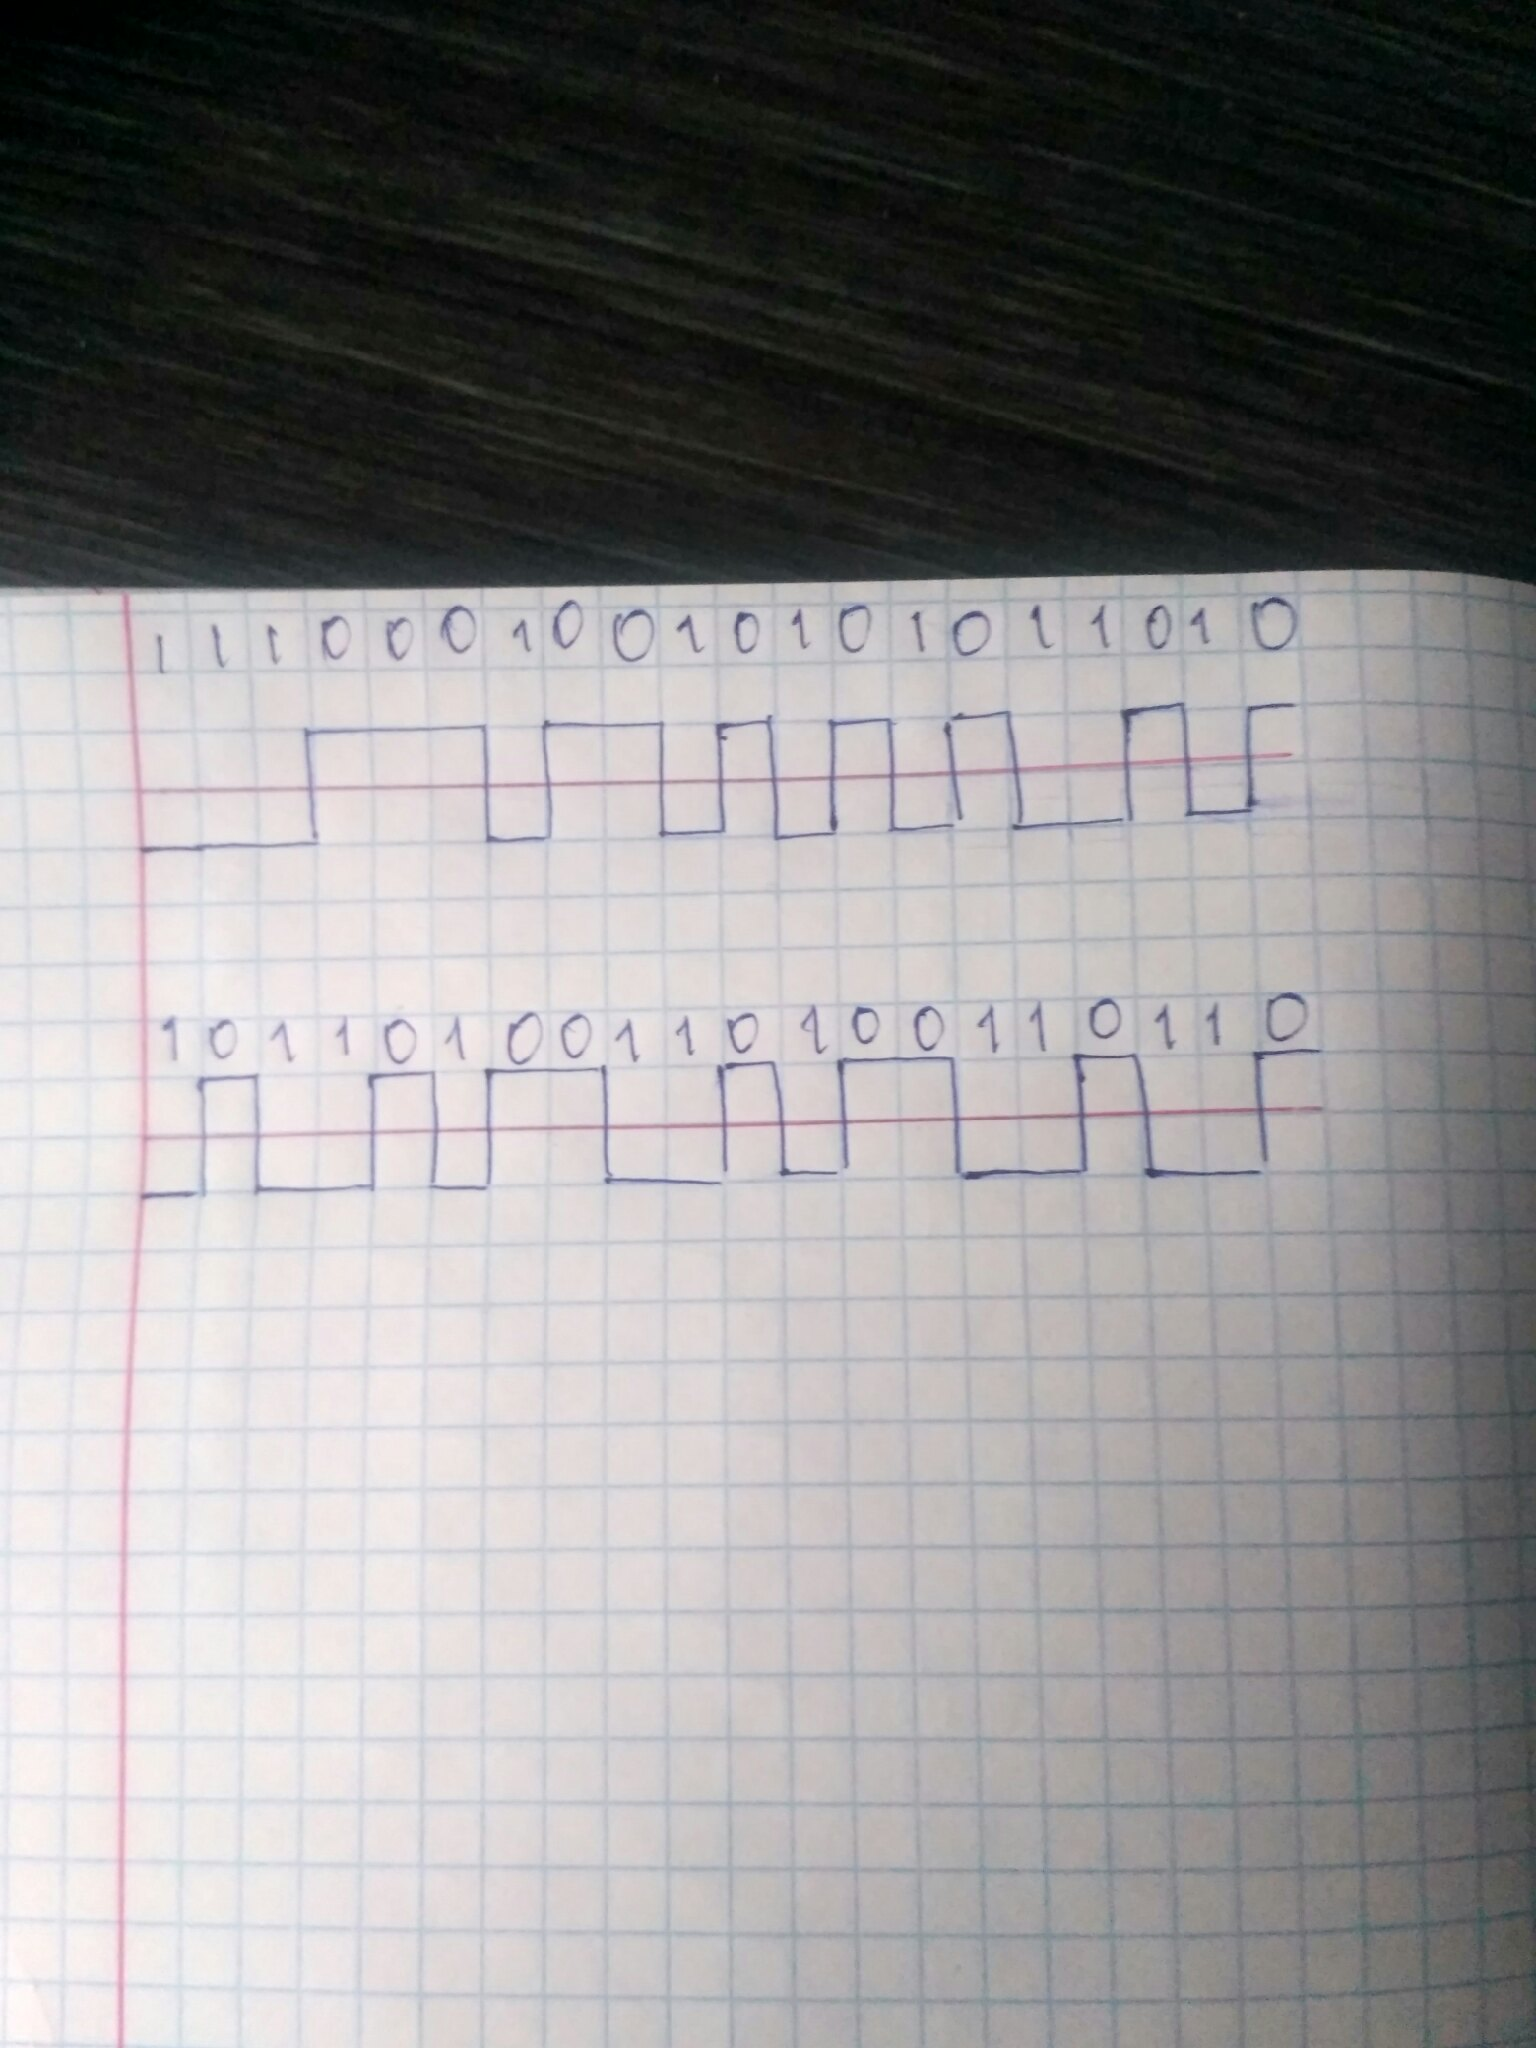 1 1 1 0 0 0 1 0 0 1 0 1 0 1 0 1 1 0 1 0
1 0 1 1 0 1 0 0 1 1 0 1 0 0 1 1 0 1 1 0